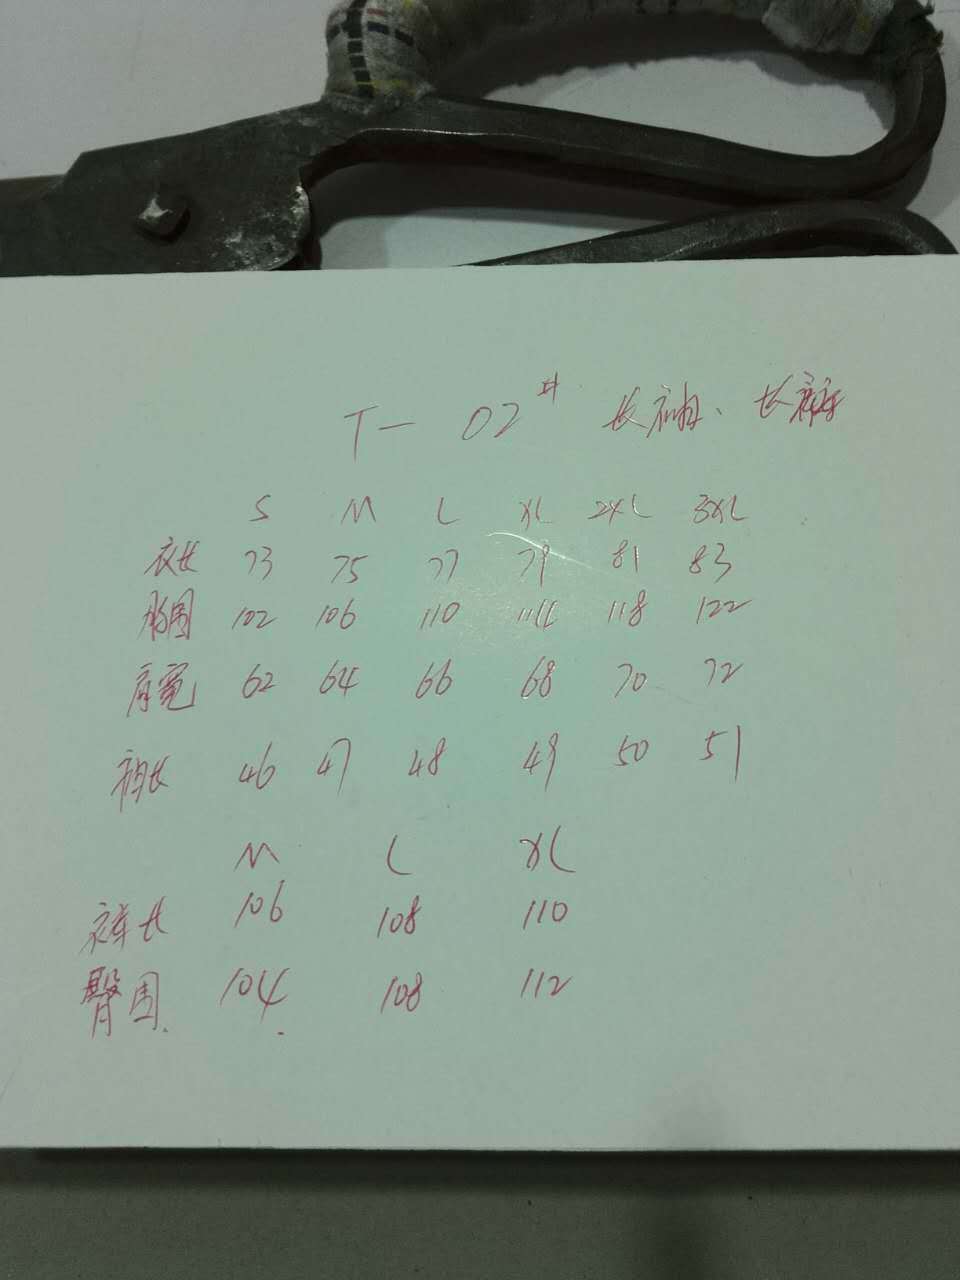 T-02# 长袖、长裤
S M L XL 2XL 3XL
衣长 73 75 77 79 81 83
胸围 102 106 110 114 118 122
肩宽 62 64 66 68 70 72
袖长 46 47 48 49 50 51
M L XL
裤长 106 108 110
臀围. 104. 108 112